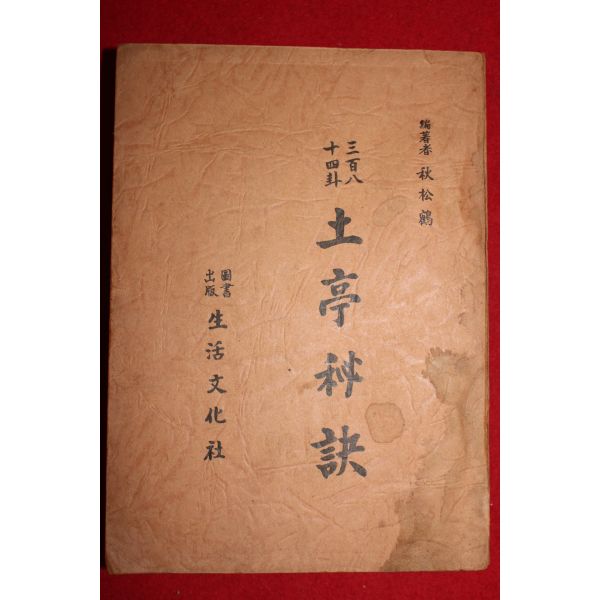 編著者 秋松鶴
三百八
十四卦
土亭秘訣
圖書
出版
生活文化社